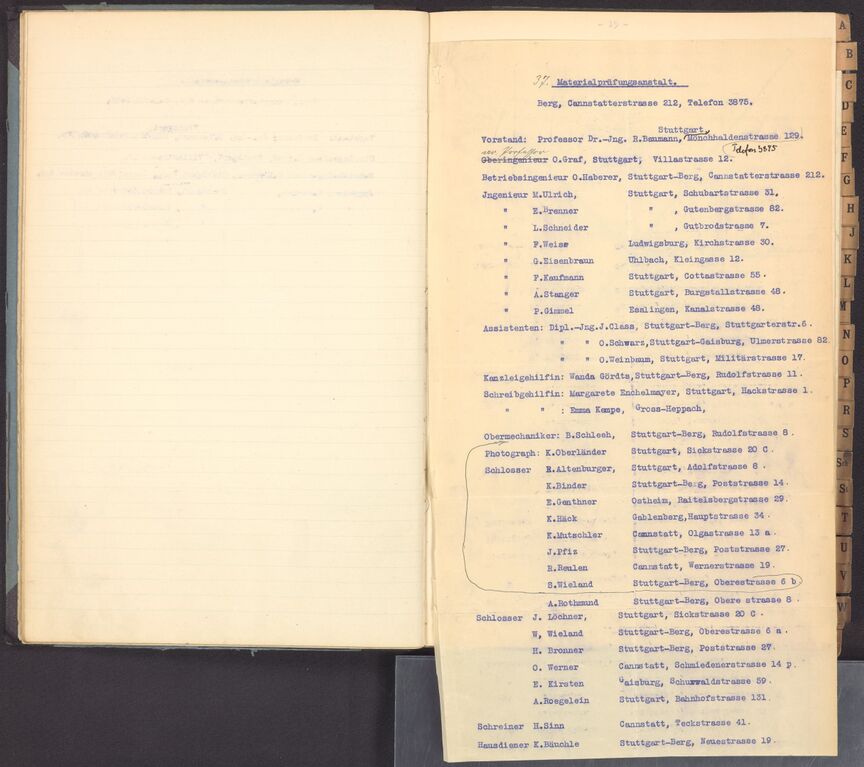 - 15 -
37. Materialprüfungsanstalt.
Berg, Cannstatterstrasse 212, Telefon 3875.
Stuttgart,
Vorstand: Professor Dr.-Jng. R.Baumann, Mönchhaldenstrasse 129.
Telefon 3875
Professor
Oberingenieur O.Graf, Stuttgart, Villastrasse 12.
Betriebsingenieur O.Haberer, Stuttgart-Berg, Cannstatterstrasse 212.
Jngenieur M.Ulrich, Stuttgart, Schubartstrasse 31,
" E.Brenner " , Gutenbergstrasse 82.
" L.Schneider " , Gutbrodstrasse 7.
" F.Weise Ludwigsburg, Kirchstrasse 30.
" G.Eisenbraun Uhlbach, Kleingasse 12.
" F.Kaufmann Stuttgart, Cottastrasse 55.
" A.Stanger Stuttgart, Burgstallstrasse 48.
" P.Gimmel Esslingen, Kanalstrasse 48.
Assistenten: Dipl.-Jng.J.Class, Stuttgart-Berg, Stuttgarterstr.6.
" " O.Schwarz,Stuttgart-Gaisburg, Ulmerstrasse 82
" " O.Weinbaum, Stuttgart, Militärstrasse 17.
Kanzleigehilfin: Wanda Gördts,Stuttgart-Berg, Rudolfstrasse 11.
Schreibgehilfin: Margarete Enchelmayer, Stuttgart, Hackstrasse 1.
" " : Emma Kempe, Gross-Heppach,
Obermechaniker: B.Schleeh, Stuttgart-Berg, Rudolfstrasse 8.
Photograph: K.Oberländer Stuttgart, Sickstrasse 20 C.
Schlosser R.Altenburger, Stuttgart, Adolfstrasse 8.
K.Binder Stuttgart-Berg, Poststrasse 14.
E.Genthner Ostheim, Raitelsbergstrasse 29.
K.Häck Gablenberg,Hauptstrasse 34.
K.Mutschler Cannstatt, Olgastrasse 13 a.
J.Pfiz Stuttgart-Berg, Poststrasse 27.
R.Reulen Cannstatt, Wernerstrasse 19.
S.Wieland Stuttgart-Berg, Oberestrasse 6 b
A.Rothmund Stuttgart-Berg, Obere strasse 8.
Schlosser J. Löchner, Stuttgart, Sickstrasse 20 C.
W, Wieland Stuttgart-Berg, Oberestrasse 6 a.
H. Bronner Stuttgart-Berg, Poststrasse 27.
O. Werner Cannstatt, Schmiedenerstrasse 14 p.
E. Kirsten Gaisburg, Schurwaldstrasse 59.
A.Roegelein Stuttgart, Bahnhofstrasse 131.
Schreiner H.Sinn Cannstatt, Teckstrasse 41.
Hausdiener K.Bäuchle Stuttgart-Berg, Neuestrasse 19.
A
B
C
D
E
F
G
H
J
K
L
M
N
O
P
R
S
Sch
St
T
U
V
W